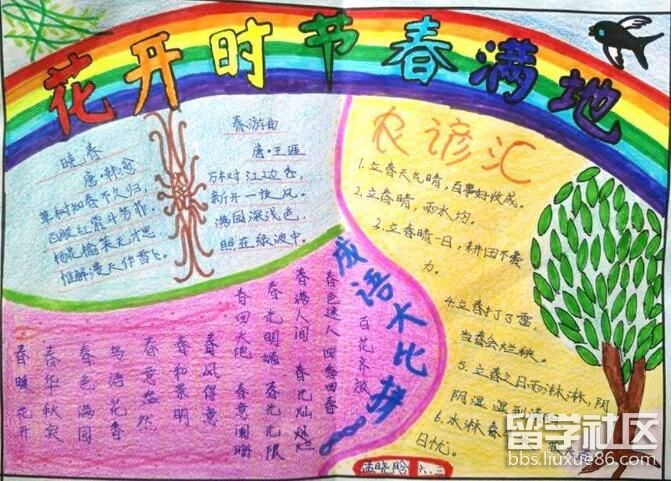 花开时节春满地
晚春
唐·韩愈
草树知春不久归，
百般红紫斗芳菲。
杨花榆荚无才思，
惟解漫天作雪飞。
春游曲
唐·王涯
万树江边杏，
新开一夜风。
满园深浅色，
照在绿波中。
农谚汇
1.立春天气晴，百事好收成。
2.立春晴，雨水均。
3.立春晴一日，耕田不费
力。
4.立春打了雷，
当春会烂秧。
5.立春之日雨淋淋，阴
阴湿湿到清明
6.水淋春
日忧。
成语大比拼
百花齐放
春色迷人 四季回春
春满人间 春光灿烂
春光明媚 春光无限
春回大地 春意阑珊
春风得意
春和景明
春意盎然
鸟语花香
春色满园
春华秋实
春暖花开
孟晓晗 六、三
留学社区
bbs.liuxue86.com